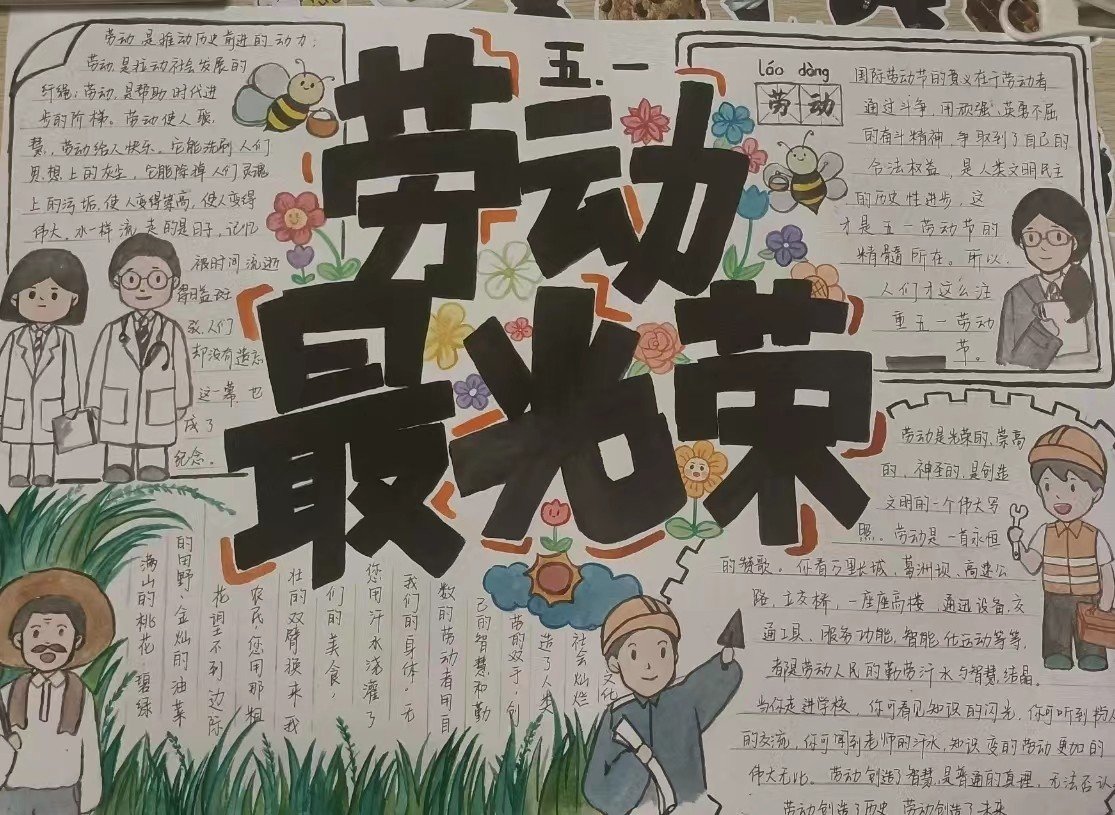 五.一
劳动
最光荣
劳动是推动历史前进的动力;
劳动是拉动社会发展的
纤绳;劳动是帮助时代进
步的阶梯。劳动使人聪
慧,劳动给人快乐。它能洗刷人们
思想上的灰尘,它能除掉人们灵魂
上的污垢,使人变得崇高,使人变得
伟大。水一样流走的是日子,记忆
被时间流逝
得日益斑
驳,人们
却没有遗忘
这一幕,也
成了
纪念。
láo dòng
劳动
国际劳动节的真义在于劳动者
通过斗争,用顽强、英勇不屈
的奋斗精神,争取到了自己的
合法权益,是人类文明民主
的历史性进步,这
才是五一劳动节的
精髓所在。所以,
人们才这么注
重五一劳动
节。
劳动是光荣的、崇高
的、神圣的,是创造
文明的一个伟大写
照。劳动是一首永恒
的赞歌。你看万里长城、葛洲坝、高速公
路、立交桥,一座座高楼、通迅设备、交
通工具、服务功能、智能化运动等等,
都是劳动人民的勤劳汗水与智慧结晶。
当你走进学校,你可看见知识的闪光,你可听到
的交流,你可得到老师的汗水,知识变的劳动更加的
伟大无比。劳动创造了智慧,是普通的真理,无法否认
劳动创造了历史,劳动创造了未来
社会灿烂文化
造了人类
劳的双手,创
己的智慧和勤
数的劳动者用自
我们的身体。无
您用汗水浇灌了
们的美食,
壮的双臂换来我
农民,您用那粗
花望不到边际
的田野,金灿的油菜
满山的桃花,碧绿